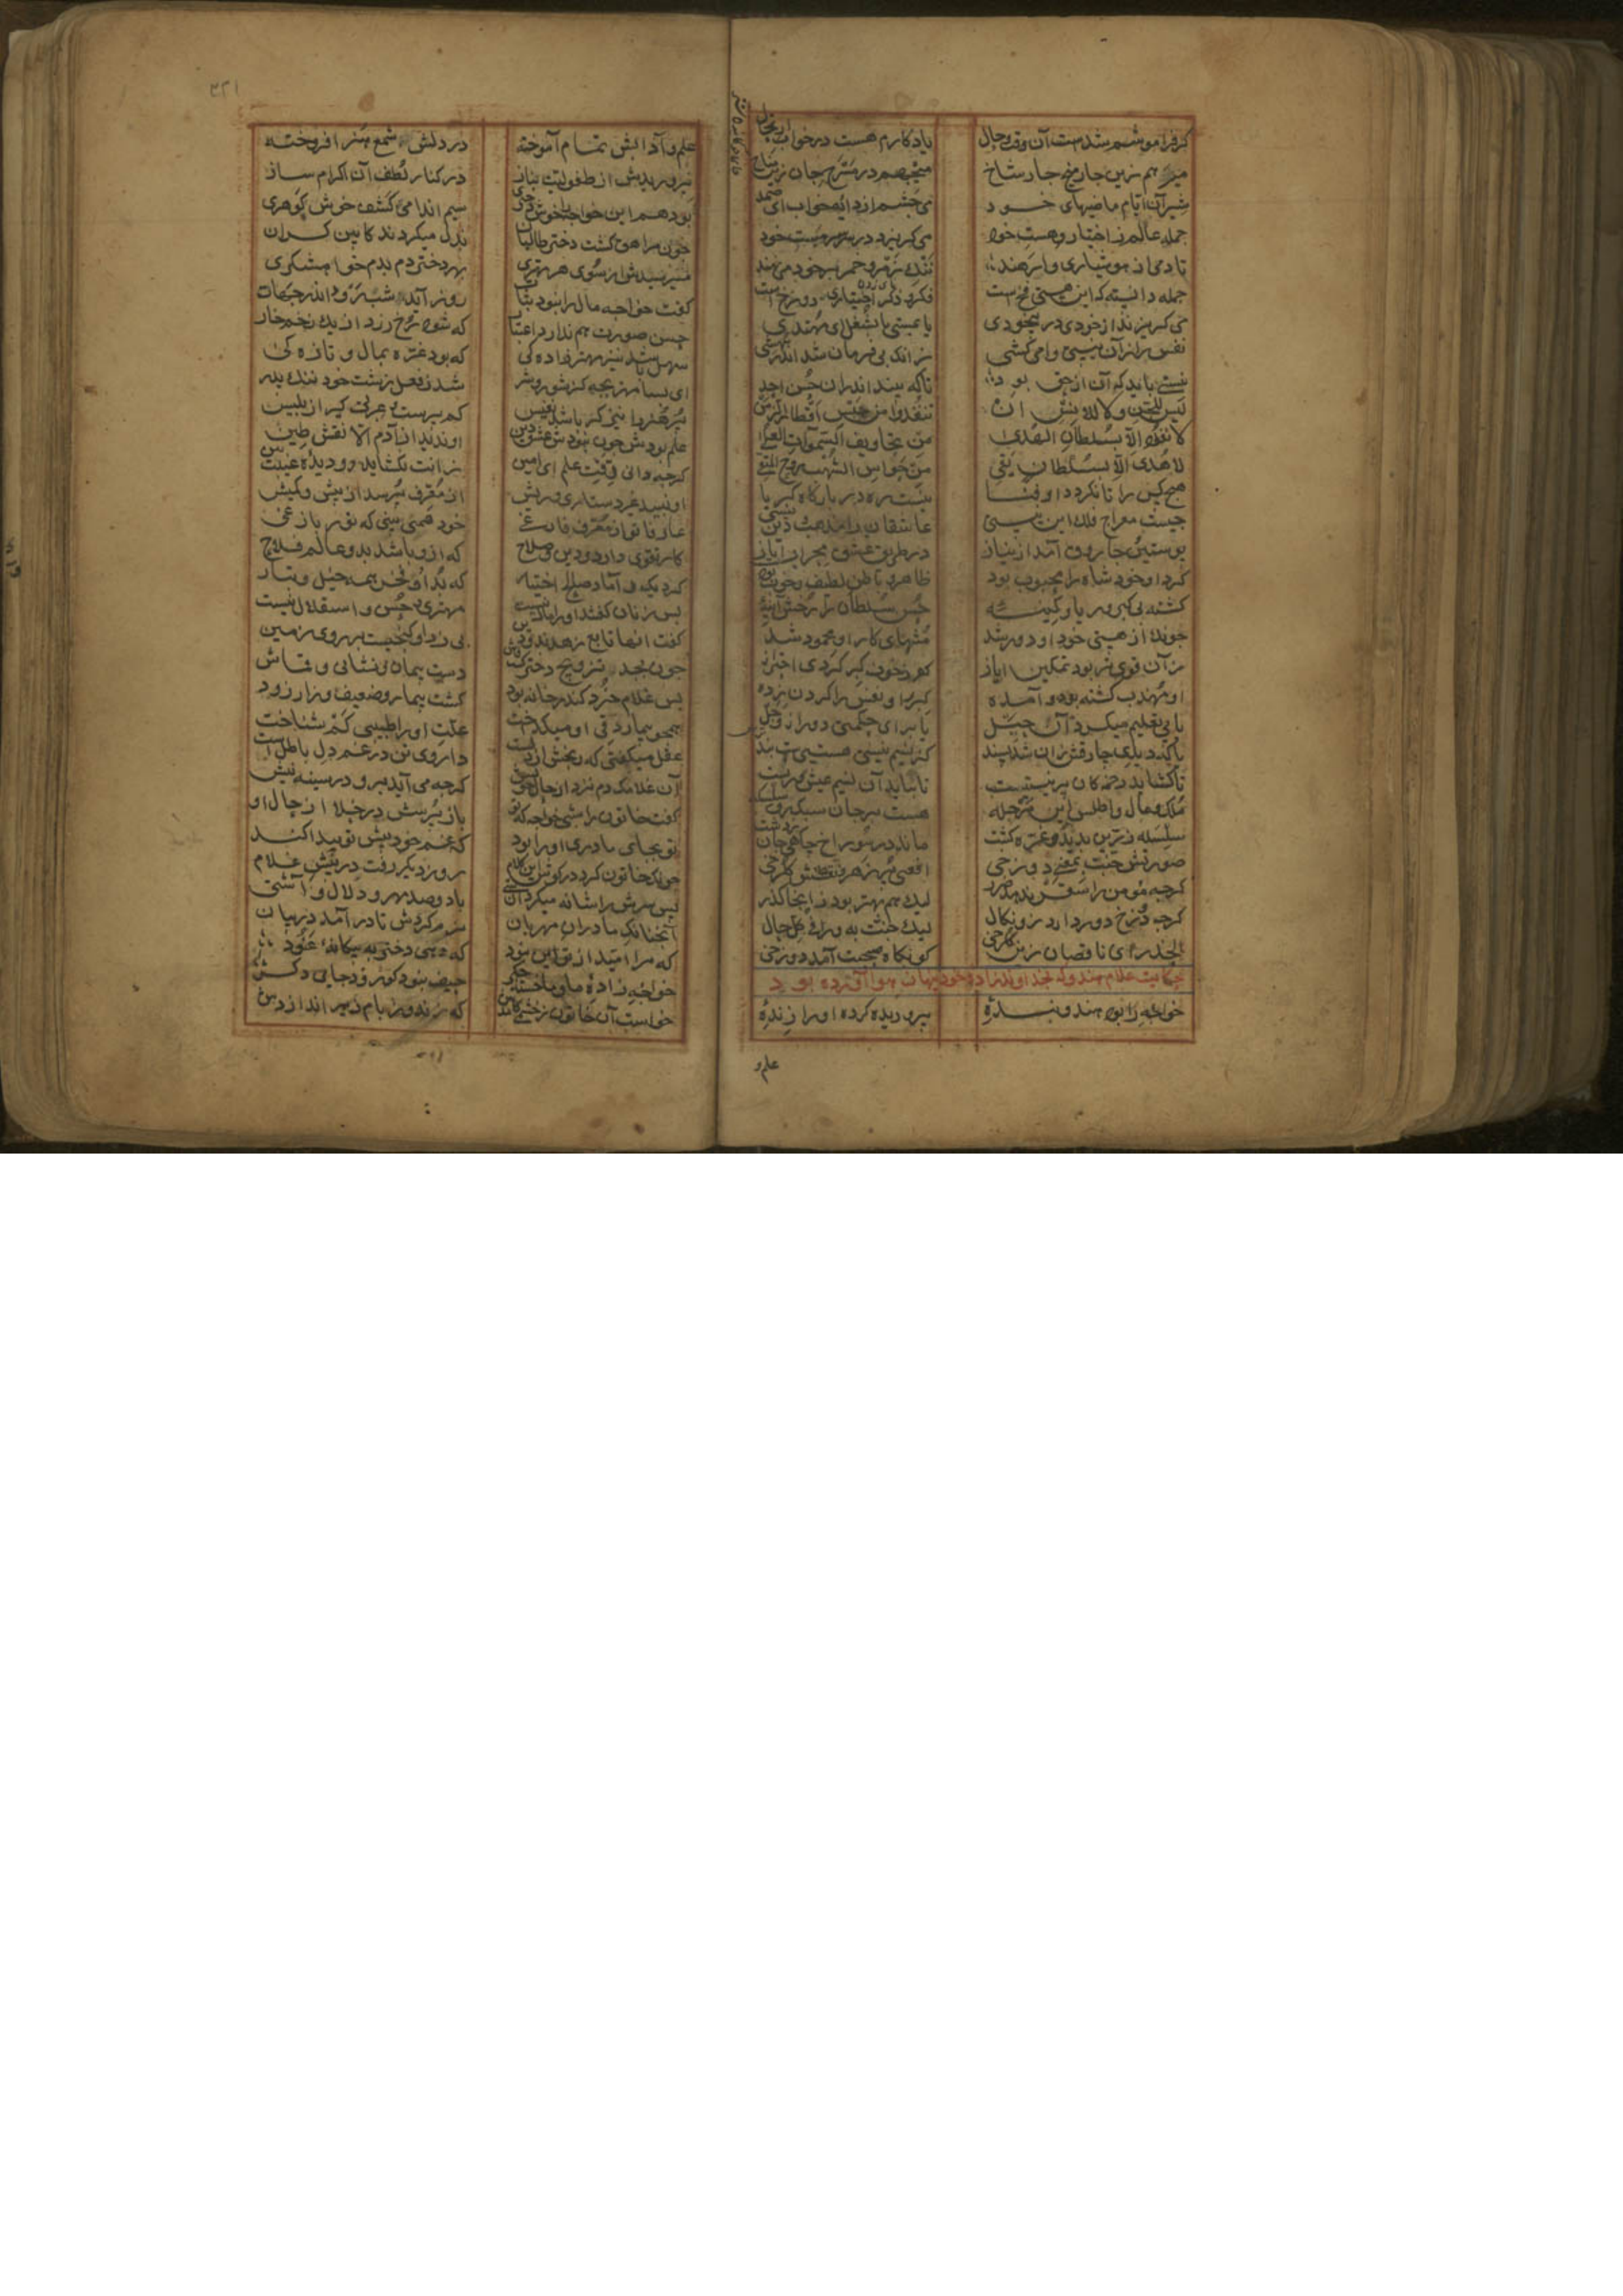 كر فراموشم شدست آن وقت و حال یادكارم هست در خواب ارتحال
میرهم زین چارمیخ چارشاخ میجهم در مسرح جان زین مناخ
شیر آن ایام ماضیهای خود می چشم از دایه خواب ای صمد
جمله عالم ز اختیار و هست خود می كریزد در سر سرمست خود
تا دمی از هوشیاری وا رهند ننك زمر و خمر بر خود می نهند
جمله دانسته كه این هستی فخ است فكر و ذكر اختیاری دوزخ است
می كریزند از خودی در بیخودی یا بمستی یا بشغل ای مهتدی
نفس را زان نیستی وا می كشی زانك بی فرمان شد اندر بیهشی
نیستی باید كه آن از حق بود تا كه بیند اندران حسن احد
لیس للجن ولا للانس ان تنفذوا من حبس اقطار الزمن
لا نفوذ الا بسلطان الهدی من تجاویف السموات العلی
لا هدی الا بسلطان یقی من حواس الشهب روح المتقی
هیچ كس را تا نكردد او فنا نیست ره در باركاه كبریا
چیست معراج فلك این نیستی عاشقان را مذهب و دین نیستی
پوستین و چارق آمد از نیاز در طریق عشق محراب ایاز
كرد او خود شاه را محبوب بود ظاهر و باطن لطیف و خوب بود
كشته بی كبر و ریا و كینه حسن سلطان را رخش آینه
چونك از هستی خود او دور شد منتهای كار او محمود شد
زان قوی تر بود تمكین ایاز كه ز خوف كبر كردی احتراز
او مهذب كشته بود و آمده كبر را و نفس را كردن زده
یا پی تعلیم میكرد آن حیل یا برای حكمتی دور از وجل
یا كه دید چارقش زان شد پسند كز نسیم نیستی هستیست بند
تا كشاید دخمه كان بر نیستست تا بیابد آن نسیم عیش و زیست
ملك و مال و اطلس این مرحله هست بر جان سبكرو سلسله
سلسله زرین بدید و غره كشت ماند در سوراخ چاهی جان ز دشت
صورتش جنت بمعنی دوزخی افعی پر زهر و نقشش كلرخی
كرچه مومن را سقر ندهد ضرر لیك هم بهتر بود ز آنجا كذر
كرچه دوزخ دور دارد زو نكال لیك جنت به ورا فی كل حال
الحذر ای ناقصان زین كلرخی كو بكاه صحبت آمد دوزخی
حكایت غلام هندو كه بخداوندزاده خود پنهان هوا آورده بود
خواجه را بود هندو بنده پروریده كرده او را زنده
علم و
علم و آدابش تمام آموخته در دلش شمع هنر افروخته
پروریدش از طفولیت بناز در كنار لطف آن اكرام ساز
بود هم این خواجه را خوش دختری سیم اندامی كشی خوش كوهری
چون مراهق كشت دختر طالبان بذل میكردند كابین كران
میرسیدش از سوی هر مهتری بهر دختر دم بدم خواهشكری
كفت خواجه مال را نبود ثبات روز آید شب رود اندر جهات
حسن صورت هم ندارد اعتبار كه شود رخ زرد از یك زخم خار
سهل باشد نیز مهترزاده كی كه بود غره بمال و تازه كی
ای بسا مهتر بچه كز شور و شر شد ز فعل زشت خود ننك پدر
پر هنر را نیز اكر باشد نفیس كم پرست و عبرتی كیر از بلیس
علم بودش چون نبودش عشق دین او ندید از آدم الا نقش طین
كرچه دانی دقت علم ای امین زانت نكشاید دو دیده غیب بین
او نبیند غیر دستاری و ریش از معرف پرسد از بیش و كمیش
عارفا تو از معرف فارغی خود همی بینی كه نور بازغی
كار تقوی دارد و دین و صلاح كه ازو باشد بدو عالم فلاح
كرد یك داماد صالح اختیار كه بد او فخر همه خیل و تبار
پس زنان كفتند او را مال نیست مهتری و حسن و استقلال نیست
كفت آنها تابع زهدند و دین بی زر او كنجیست بر روی زمین
چون بجد تزویج دختر كشت فاش دست پیمان و نشانی و قماش
پس غلام خرد كندر خانه بود كشت بیمار و ضعیف و زار زود
همچو بیمار دقی او میكداخت علت او را طبیبی كم شناخت
عقل میكفتی كه رنجش از دلست داروی تن در غم دل باطل است
آن غلامك دم نزد از حال خویش كرچه می آید برو در سینه نیش
كفت خاتون را شبی خواجه كه تو باز پرسش در خلا از حال او
تو بجای مادری او را بود كه غم خود پیش تو پیدا كند
چونك خاتون كرد در كوش این كلام روز دیكر رفت در پیش غلام
پس سرش را شانه میكرد آن ستی با دو صد مهر و دلال و آشتی
آنچنانك مادران مهربان نرم كردش تا در آمد در بیان
كه مرا امید از تو این نبود كه دهی دختر به بیكانه عنود
خواجه زاده ما و ما خسته جكر حیف نبود كو رود جای دكر
خواست آن خاتون ز خشمی كامدش كه زند وز بام زیر اندازدش